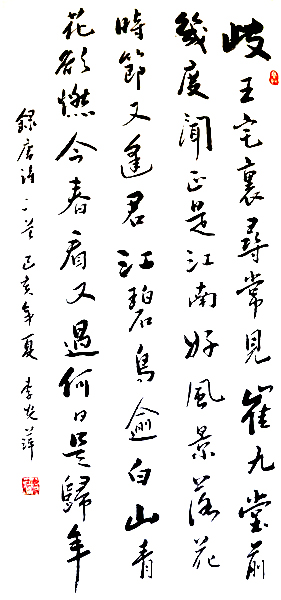 歧王宅裏尋常見崔九堂前
幾度聞正是江南好風景落花
時節又逢君江碧鳥逾白山青
花欲燃今春看又過何日是歸年
錄唐詩二首己亥年夏李